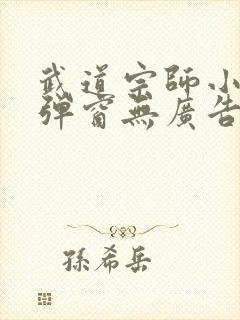 武道宗師小
彈窗無廣告
孫希岳